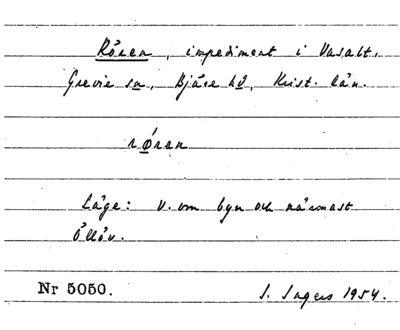 Råren, impediment i Vasalt,
Grevie sn, Bjäre hd, Krist. län.
røren
Läge: V. om byn och närmast
Öllöv.
Nr 5050. I. Ingers 1954.